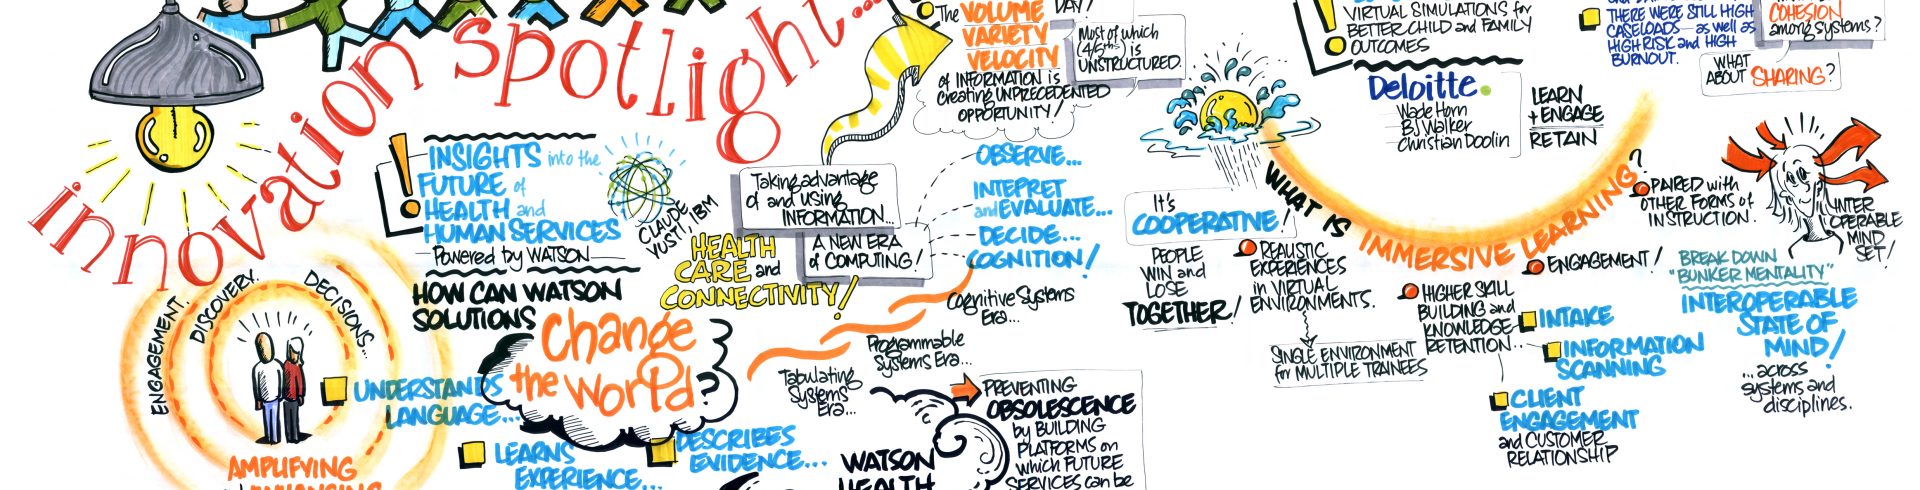 innovation spotlight...
INSIGHTS into the
FUTURE of
HEALTH and
HUMAN SERVICES
Powered by WATSON
CLAUDE
YUSTI, IBM
HOW CAN WATSON
SOLUTIONS
Change
the World?
HEALTH
CARE and
CONNECTIVITY!
ENGAGEMENT.
DISCOVERY.
DECISIONS...
AMPLIFYING
UNDERSTANDS
LANGUAGE...
LEARNS
EXPERIENCE...
DESCRIBES
EVIDENCE...
Taking advantage
of and using
INFORMATION...
A NEW ERA
of COMPUTING!
The VOLUME
VARIETY
VELOCITY
of INFORMATION is
Creating UNPRECEDENTED
OPPORTUNITY!
DAY!
Most of which
(4/5ths) is
UNSTRUCTURED.
OBSERVE...
INTEPRET
and EVALUATE...
DECIDE...
COGNITION!
Cognitive Systems
Era...
Programmable
Systems Era...
Tabulating
Systems
Era...
WATSON
HEALTH
PREVENTING
OBSOLESCENCE
by BUILDING
PLATFORMS on
which FUTURE
SERVICES can be
It's
COOPERATIVE!
PEOPLE
WIN and
LOSE
TOGETHER!
VIRTUAL SIMULATIONS for
BETTER CHILD and FAMILY
OUTCOMES
Deloitte.
Wade Horn
BJ Walker
Christian Doolin
LEARN
+ ENGAGE
RETAIN
WHAT IS IMMERSIVE LEARNING?
REALISTIC
EXPERIENCES
in VIRTUAL
ENVIRONMENTS.
SINGLE ENVIRONMENT
for MULTIPLE TRAINEES
HIGHER SKILL
BUILDING and
KNOWLEDGE
RETENTION..
ENGAGEMENT!
PAIRED with
OTHER FORMS of
INSTRUCTION.
INTAKE
INFORMATION
SCANNING
CLIENT
ENGAGEMENT
and CUSTOMER
RELATIONSHIP
THERE WERE STILL HIGH
CASELOADS as well as
HIGH RISK and HIGH
BURNOUT.
COHESION
among systems?
WHAT
ABOUT SHARING?
INTER
OPERABLE
MIND
SET!
BREAK DOWN
"BUNKER MENTALITY"
INTEROPERABLE
STATE OF
MIND!
...across
systems and
disciplines.